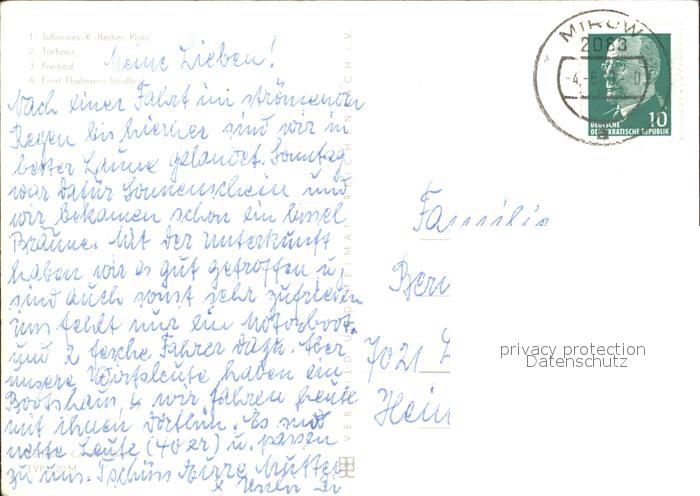 1. Johannes-R.-Becher-Platz
2. Torhaus
3. Freibad
4. Ernst-Thälmann-Straße
Meine Lieben!
Nach einer Fahrt im strömenden
Regen bis hierher sind wir in
bester Laune gelandet. Sonntag
war dafür Sonnenschein und
wir bekamen schon ein bissel
Bräune. Mit der Unterkunft
haben wir es gut getroffen u.
sind auch sonst sehr zufrieden
uns fehlt nur ein Motorboot.
und 2 fesche Fahrer dazu. Aber
unsere Wirtsleute haben ein
Bootshaus u. wir fahren heute
mit ihnen dorthin. Es sind
nette Leute (40er) u. passen
zu uns. Tschüss Mutter
VEB BILD UND HEIMAT REICHENBACH I. V.
MIROW
2083
-4.-6.
10
DEUTSCHE
DEMOKRATISCHE REPUBLIK
Familie
Bern
7021 L
Hein
privacy protection
Datenschutz